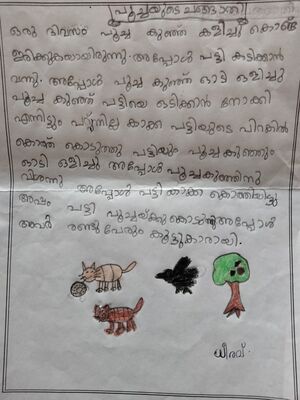 പൂച്ചയുടെ ചങ്ങാതി
ഒരു ദിവസം പൂച്ച കുഞ്ഞ് കളിച്ചു കൊണ്ട്
ഇരിക്കുകയായിരുന്നു. അപ്പോൾ പട്ടി കടിക്കാൻ
വന്നു. അപ്പോൾ പൂച്ച കുഞ്ഞ് ഓടി ഒളിച്ചു
പൂച്ച കുഞ്ഞ് പട്ടിയെ ഓടിക്കാൻ നോക്കി
എന്നിട്ടും പറ്റുന്നില്ല കാക്ക പട്ടിയുടെ പിറകിൽ
കൊത്ത് കൊടുത്തു പട്ടിയും പൂച്ച കുഞ്ഞും
ഓടി ഒളിച്ചു അപ്പോൾ പൂച്ചകുഞ്ഞിനു
വിശന്നു അപ്പോൾ പട്ടി കാക്ക
അപ്പം പട്ടി പൂച്ചയ്ക്കു അപ്പോൾ
അവർ രണ്ടുപേരും കൂട്ടുകാരായി.
ധീരവ്.